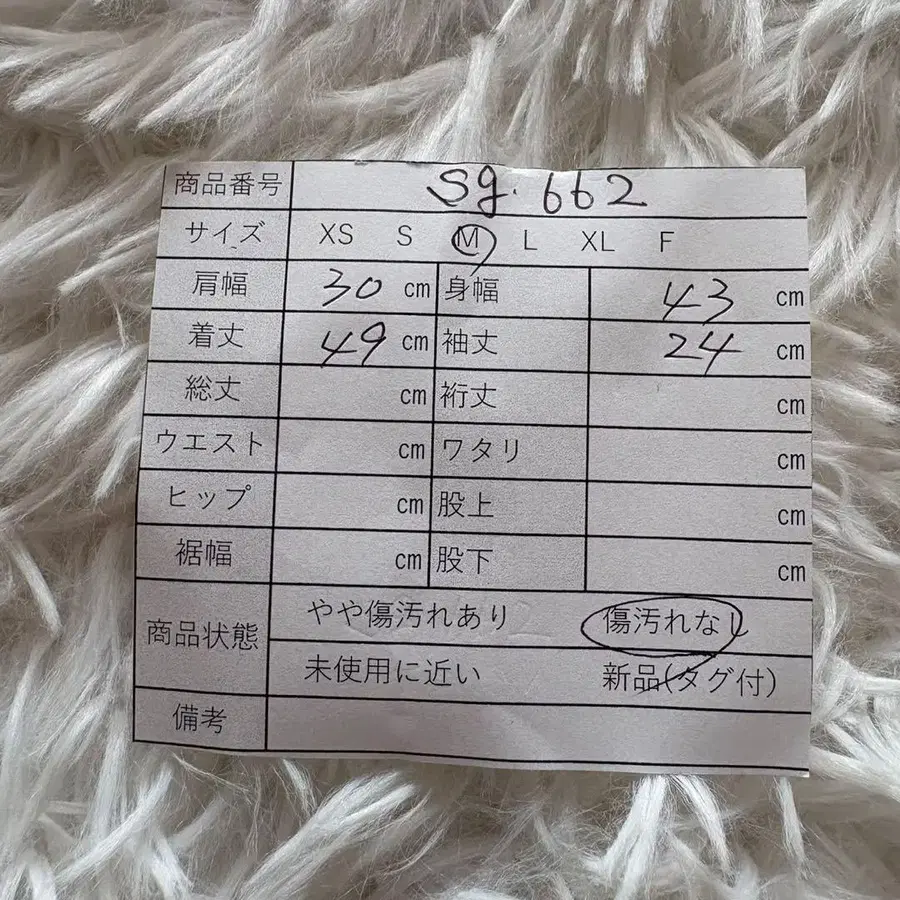 商品番号 sg. 662
サイズ XS S M L XL F
肩幅 30 cm 身幅 43 cm
着丈 49 cm 袖丈 24 cm
総丈 cm 裄丈 cm
ウエスト cm ワタリ cm
ヒップ cm 股上 cm
裾幅 cm 股下 cm
商品状態 やや傷汚れあり 傷汚れなし
未使用に近い 新品(タグ付)
備考